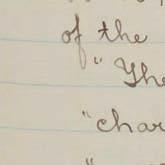 of the
"The
"char